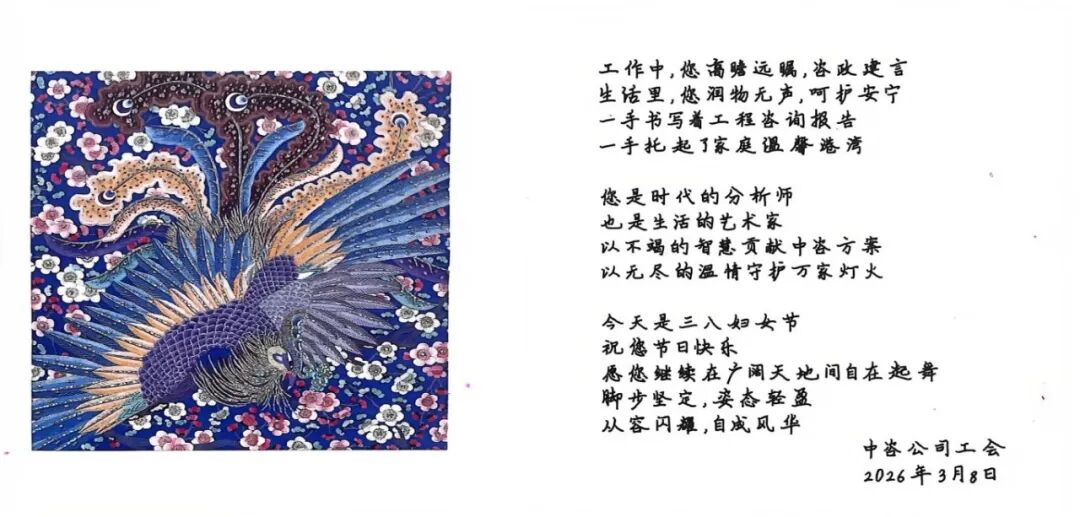 工作中,您高瞻远瞩,咨政建言
生活里,您润物无声,呵护安宁
一手书写着工程咨询报告
一手托起了家庭温馨港湾
您是时代的分析师
也是生活的艺术家
以不竭的智慧贡献中咨方案
以无尽的温情守护万家灯火
今天是三八妇女节
祝您节日快乐
愿您继续在广阔天地间自在起舞
脚步坚定,姿态轻盈
从容闪耀,自成风华
中咨公司工会
2026年3月8日